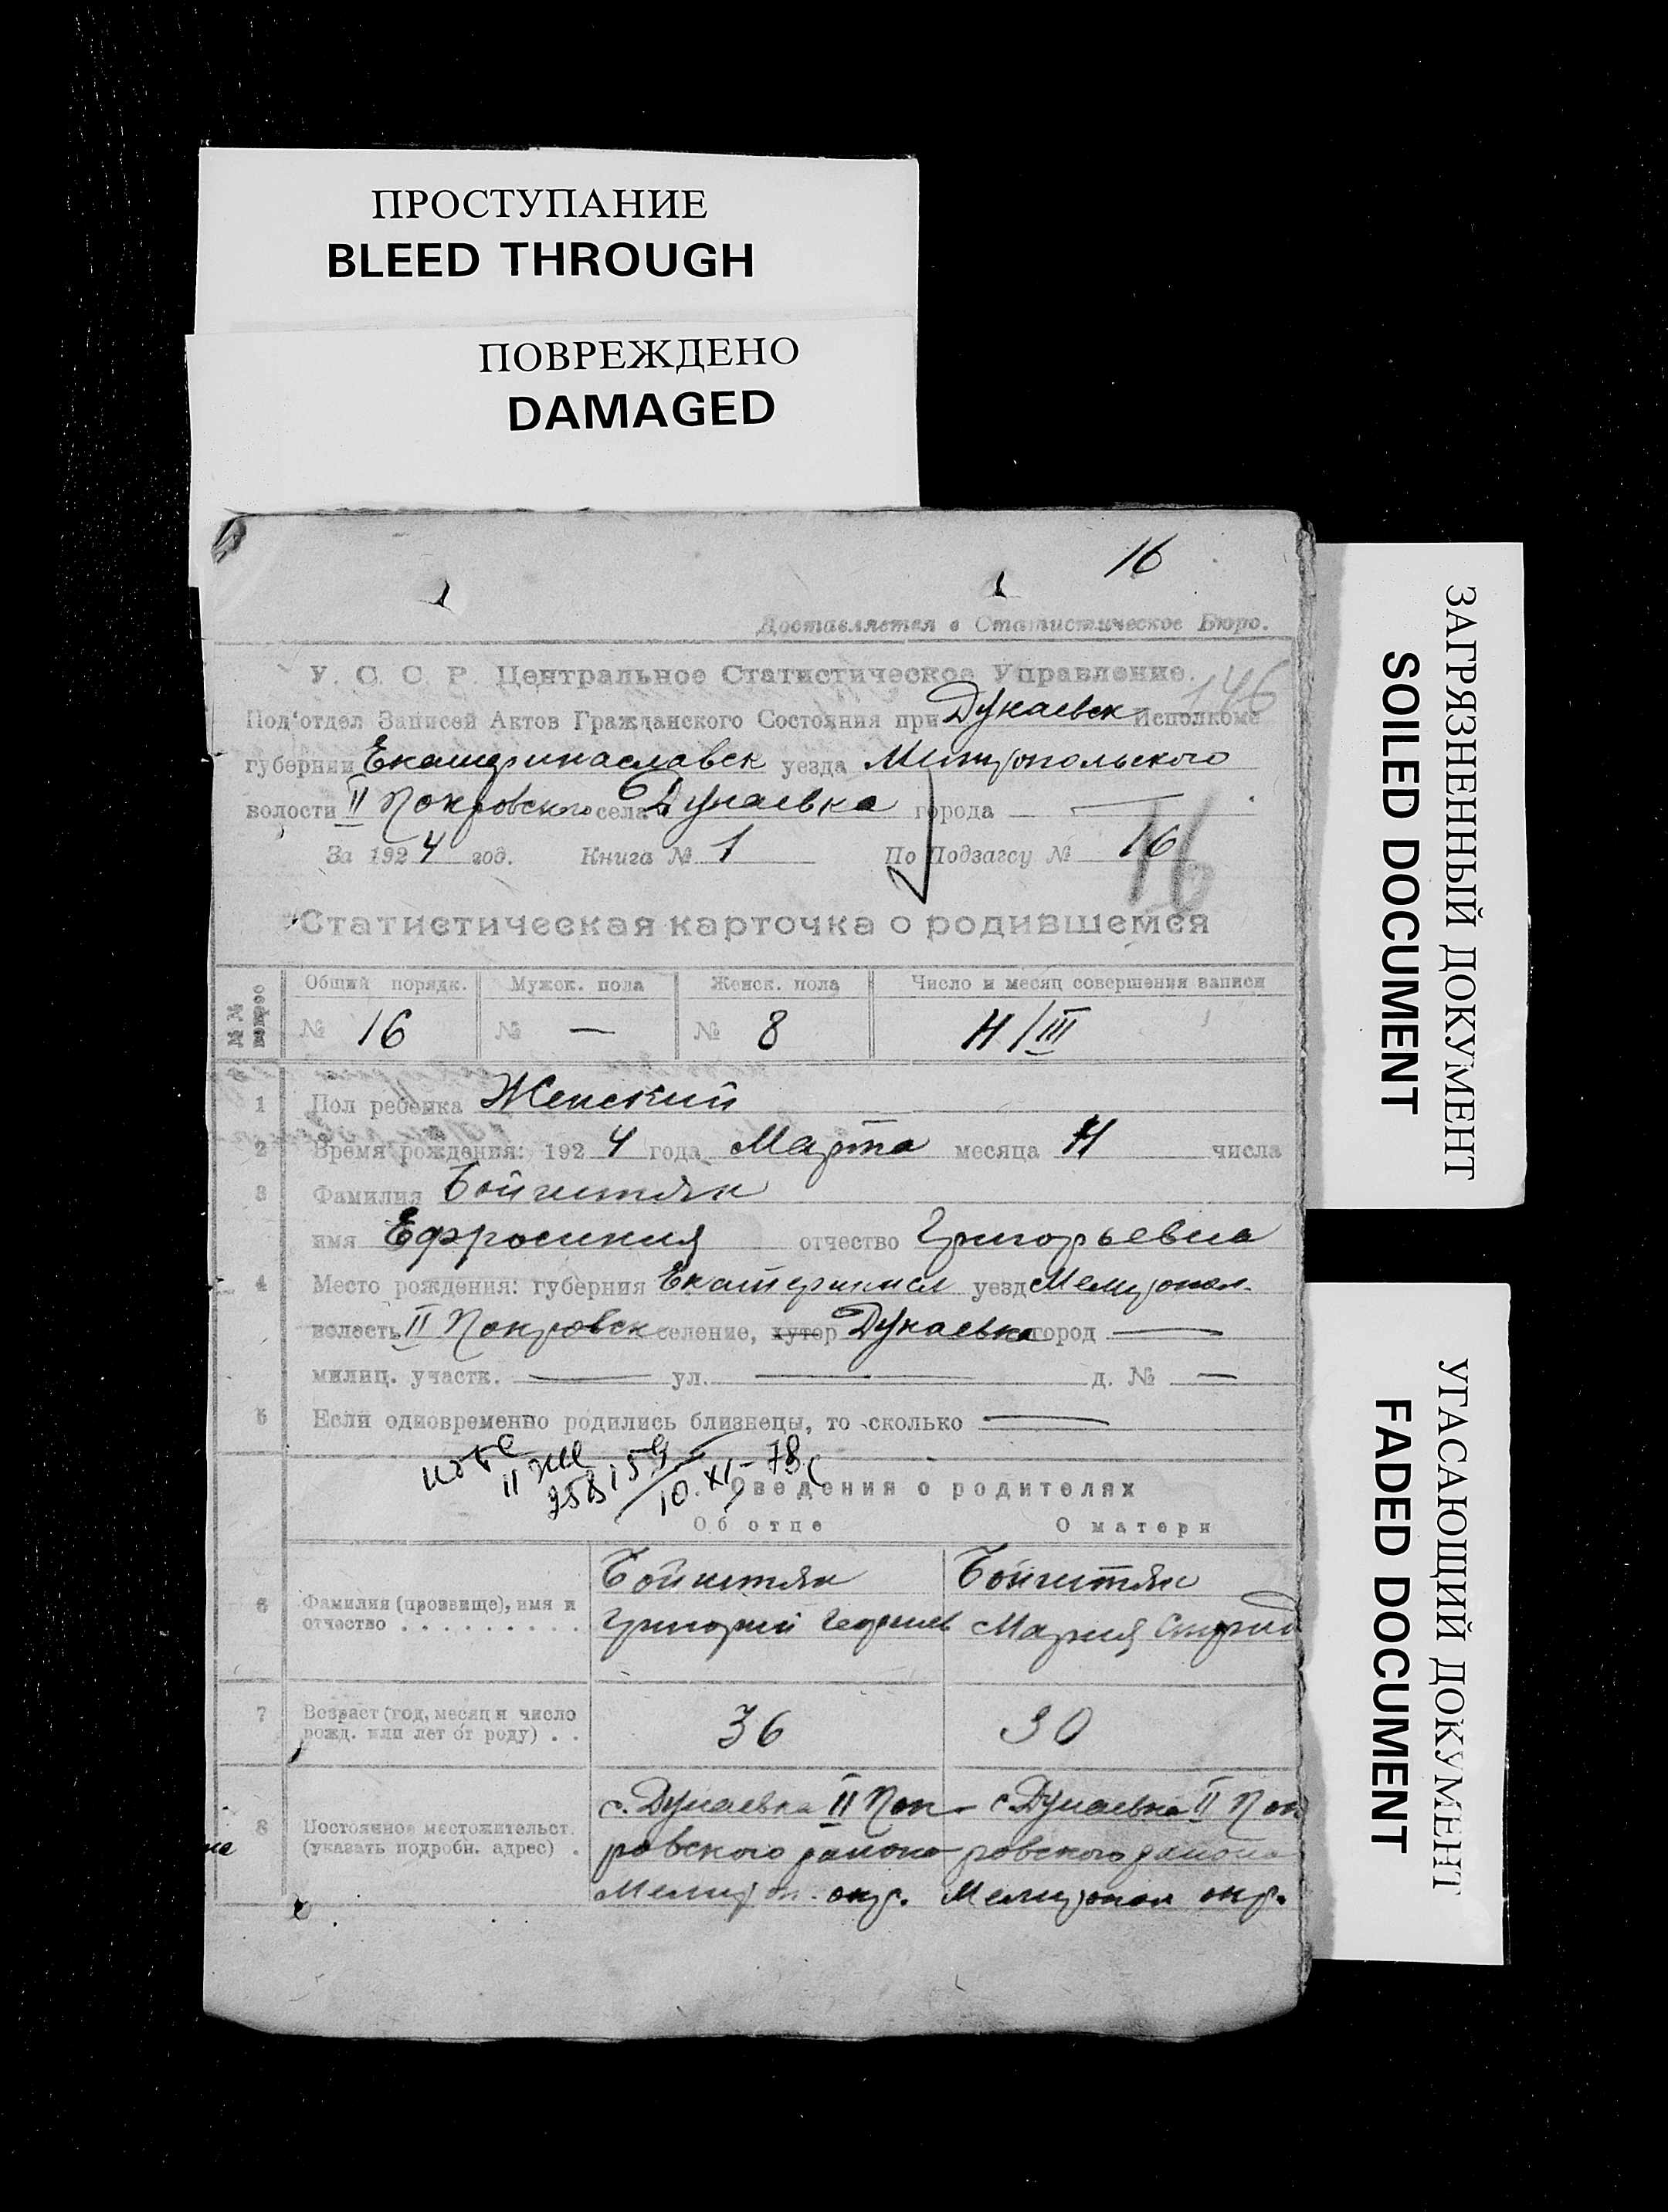 ПРОСТУПАНИЕ
BLEED THROUGH
ПОВРЕЖДЕНО
DAMAGED
16
Доставляется в Статистическое Бюро.
У. С. С. Р. Центральное Статистическое Управление.
146
Под'отдел Записей Актов Гражданского Состояния при Дунаевск Исполкоме
губернии Екатеринаславск уезда Мелитопольского
волости II Покровского села Дунаевка города —
За 1924 год. Книга № 1 По Подзагсу № 16
16
Статистическая карточка о родившемся
№№ вопросо Общий порядк. Мужск. пола Женск. пола Число и месяц совершения записи
№ 16 № — № 8 4/III
1 Пол ребенка Женский
2 Время рождения: 1924 года Марта месяца 4 числа
3 Фамилия
имя Ефросиния отчество Григорьевна
4 Место рождения: губерния Екатеринсл уезд Мелитопол.
волость II Покровск селение, хутор Дунаевка город —
милиц. участк. — ул. — д. № —
5 Если одновременно родились близнецы, то сколько —
10.XI-78
Сведения о родителях
Об отце О матери
6 Фамилия (прозвище), имя и отчество
Григорий Георгиев Мария Спирид
7 Возраст (год, месяц и число рожд. или лет от роду) . . 36 30
8 Постоянное местожительст. (указать подробн. адрес) .
с. Дунаевка II Пок- с. Дунаевка II Пок
ровского района ровского района
Мелитоп. окр. Мелитопол окр.
ЗАГРЯЗНЕННЫЙ ДОКУМЕНТ
SOILED DOCUMENT
УГАСАЮЩИЙ ДОКУМЕНТ
FADED DOCUMENT